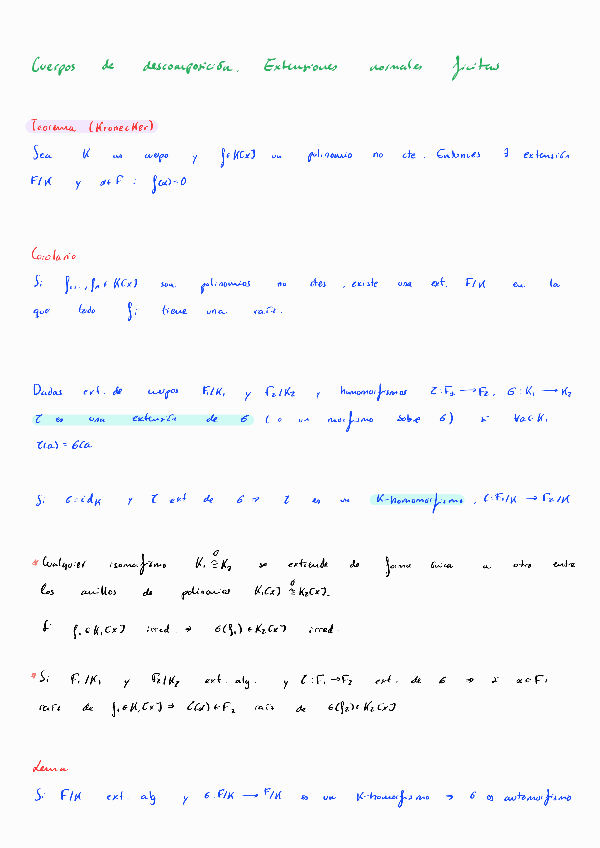 Cuerpos de descomposición. Extensiones normales finitas
Teorema (Kronecker)
Sea K un cuerpo y f∈K[x] un polinomio no cte. Entonces ∃ extensión
F/K y α∈F : f(α)=0
Corolario
Si f₁,..,fₙ∈K[x] son polinomios no ctes, existe una ext. F/K en la
que todo fᵢ tiene una raíz.
Dadas ext. de cuerpos F₁/K₁ y F₂/K₂ y homomorfismos τ:F₁→F₂, σ:K₁→K₂
τ es una extensión de σ (o un morfismo sobre σ) si ∀a∈K₁
τ(a)=σ(a)
Si σ=id_K y τ ext de σ ⇒ τ es un K-homomorfismo, τ:F₁/K→F₂/K
*Cualquier isomorfismo K₁ ≅ K₂ se extiende de forma única a otro entre
los anillos de polinomios K₁[x] ≅ K₂[x].
Si f₁∈K₁[x] irred. ⇒ σ(f₁)∈K₂[x] irred.
*Si F₁/K₁ y F₂/K₂ ext. alg. y τ:F₁→F₂ ext. de σ ⇒ si α∈F₁
raíz de f₁∈K₁[x] ⇒ τ(α)∈F₂ raíz de σ(f₂)∈K₂[x]
Lema
Si F/K ext alg y σ:F/K→F/K es un K-homorfismo ⇒ σ es automorfismo